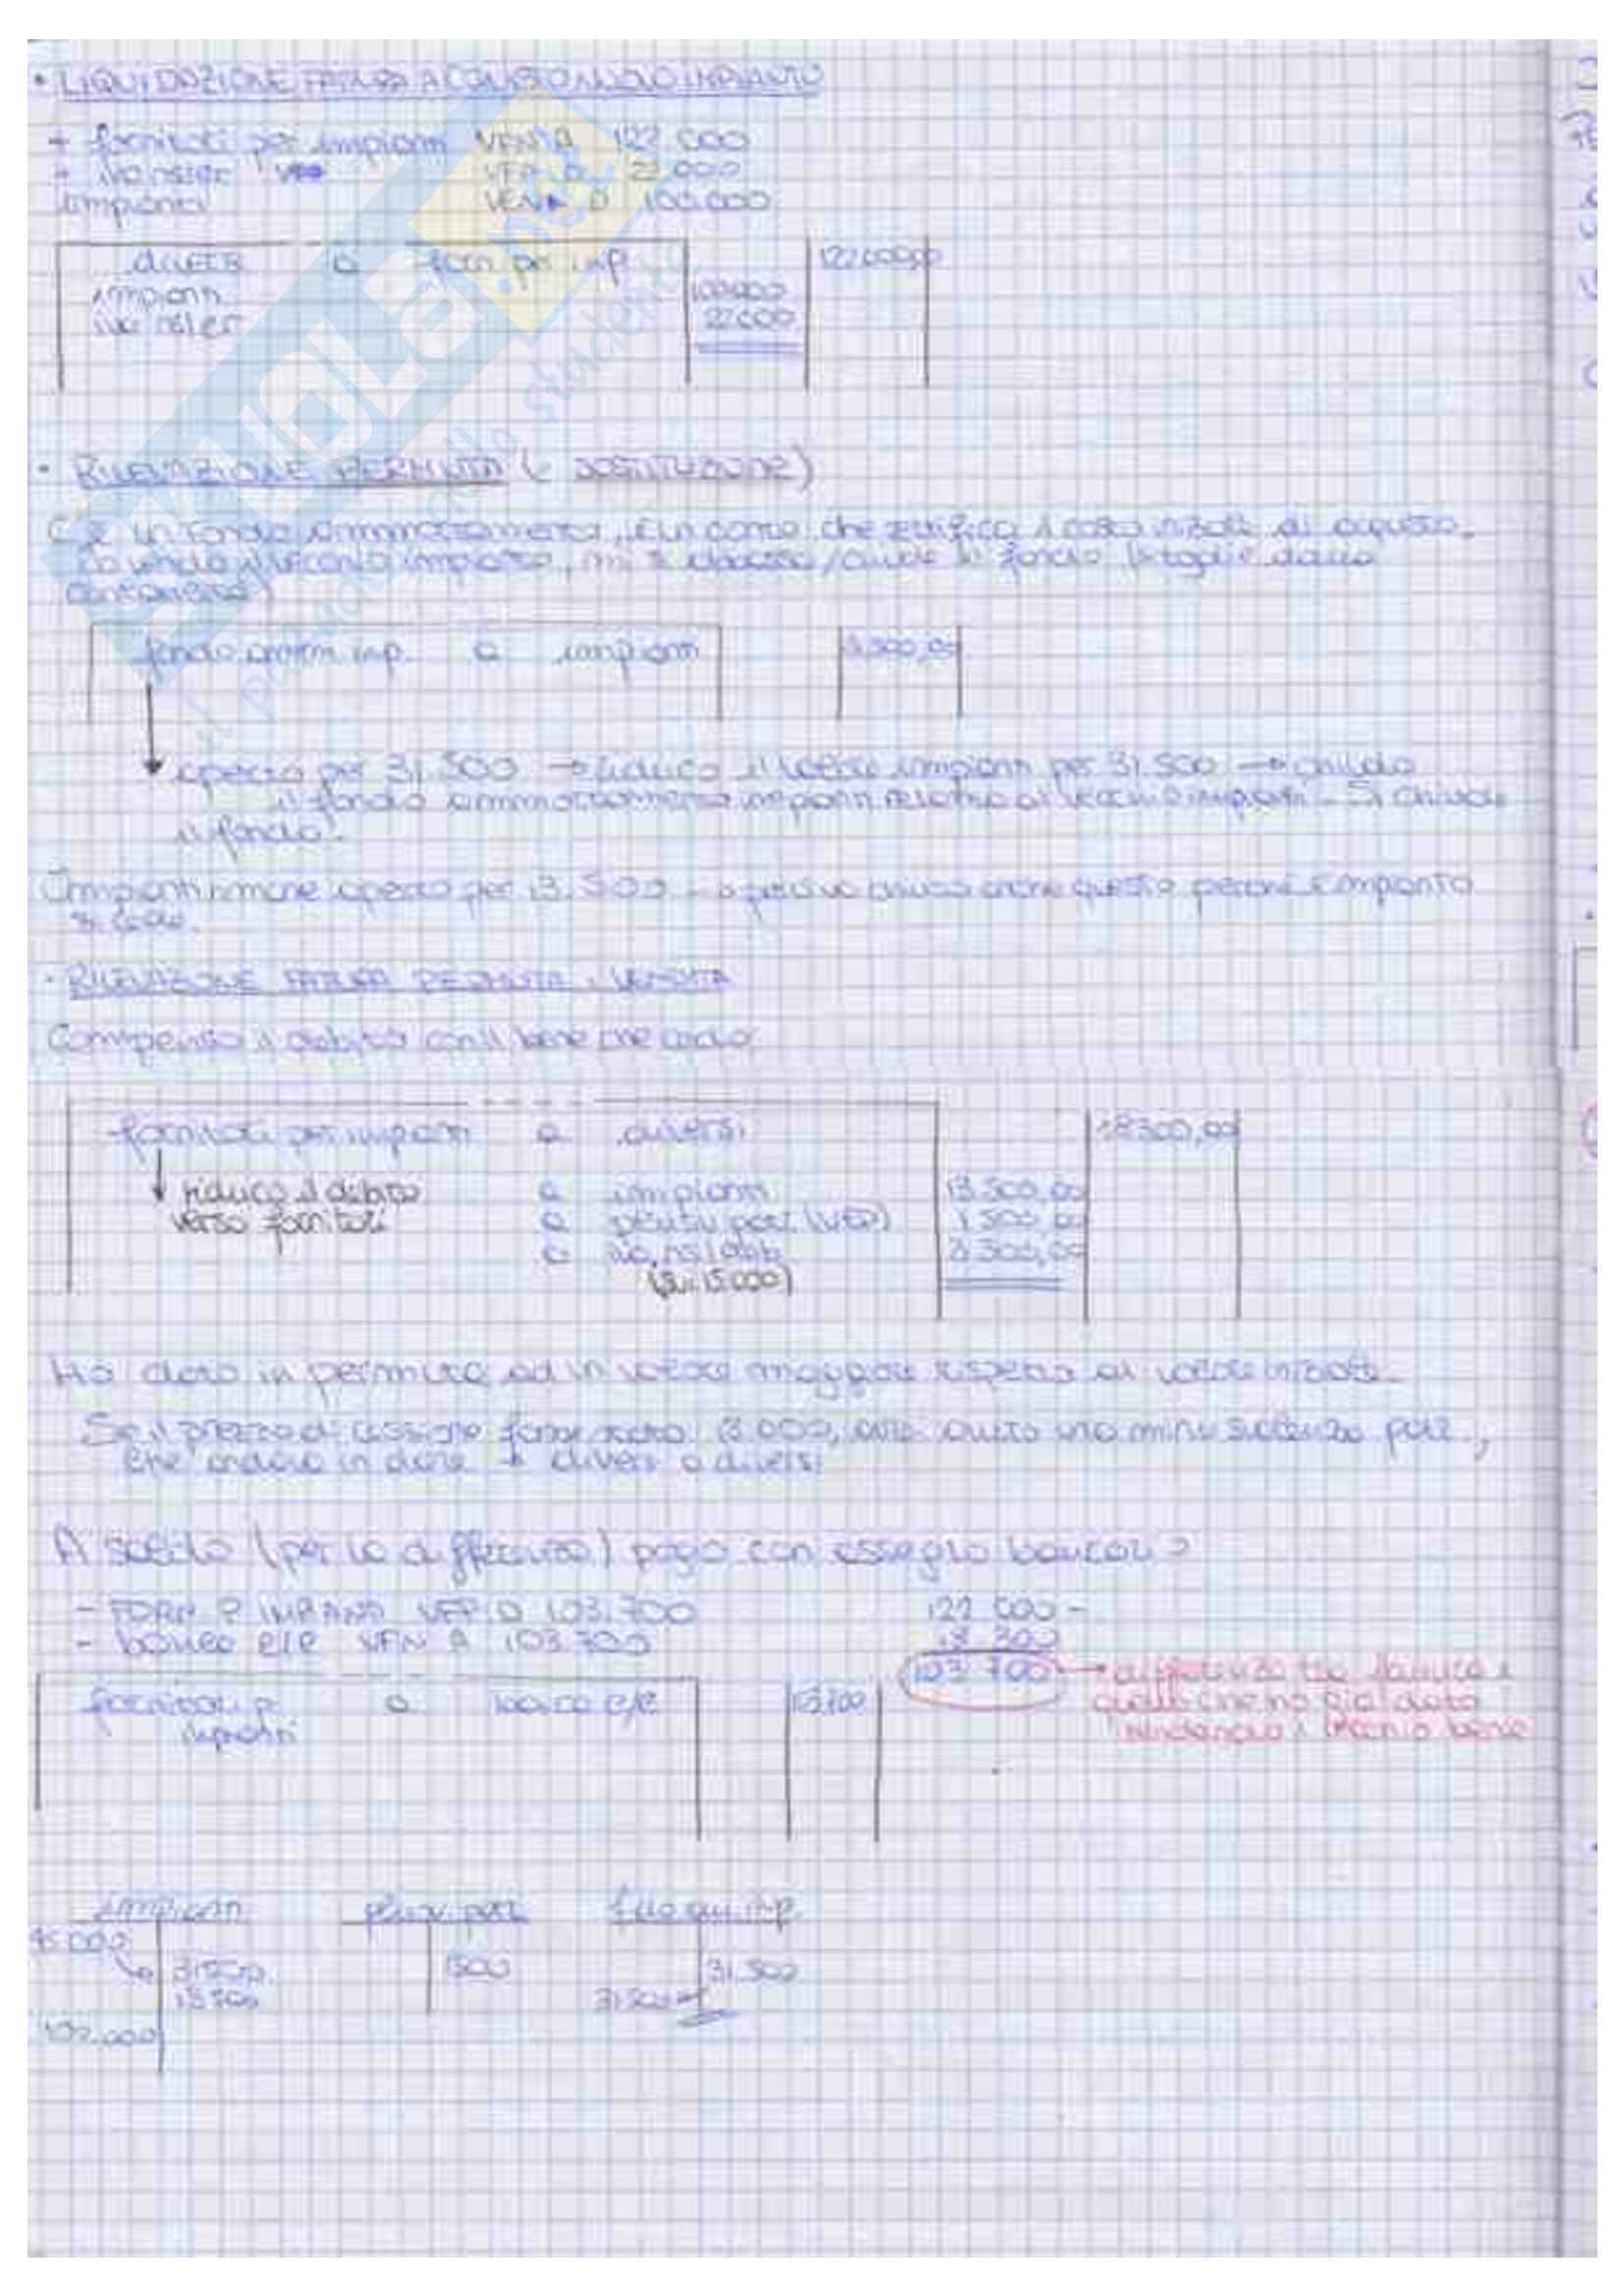 • LIQUIDAZIONE FATTURA ACQUISTO NUOVO IMPIANTO
- fornitori per impianti VFN A 122.000
- iva ns/cr VFP D 22.000
impianti VEN D 100.000
diversi a forn per imp. 122000,00
impianti 100.000
iva ns/cr 22.000
• RILEVAZIONE PERMUTA (= SOSTITUZIONE)
C'è un fondo ammortamento, è un conto che rettifica il costo di acquisto.
vecchio impianto, mi si chiude il fondo (si toglie dalla
contabilità)
fondo amm imp. a impianti 31.500,00
aperto per 31.500 → riduco il valore impianti per 31.500 → chiudo
il fondo ammortamento impianti relativo al vecchio impianto. Si chiude
il fondo.
Impianti rimane aperto per 13.500 anche questo perché l'impianto
si cede.
• RILEVAZIONE FATTURA PERMUTA - VENDITA
Compenso il debito con il bene che cedo
fornitori per impianti a diversi 18300,00
riduco il debito a impianti 13.500,00
verso fornitori a plusv. patr. 1.500,00
a iva ns/deb 3.300,00
(su 15.000)
Ho dato in permuta ad un valore maggiore rispetto al valore
Se il prezzo di cessione fosse stato 13.000, avrei avuto una minusvalenza patr.,
che andava in dare → diversi a diversi
A saldo (per la differenza) pago con assegno bancario
- FORN P IMPIANTI VFP D 103.700 122.000 -
- banca c/c VFN A 103.700 18.300
103.700 → differenza tra fattura e
fornitori p. a banca c/c 103.700 quello che ho già dato
impianti rendendo il vecchio bene
impianti plusv patr. f.do imp.
45.000
31.500 1500 31.500
13.500 31.500
100.000
il paradiso dello studente
SKUOLA.net